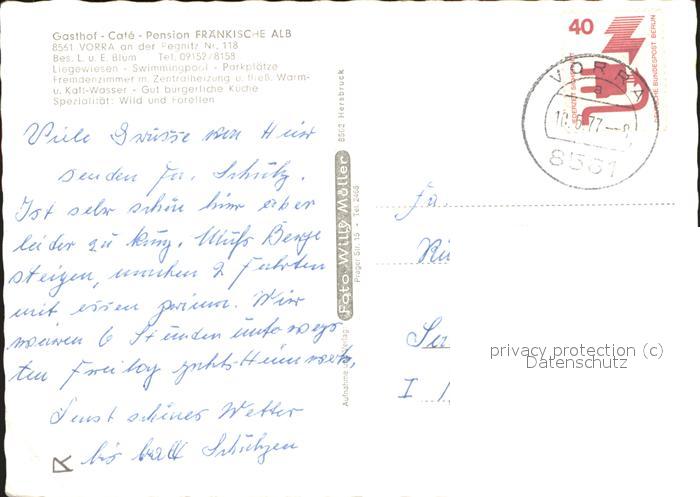 Gasthof - Café - Pension FRÄNKISCHE ALB
8561 VORRA an der Pegnitz Nr. 118
Bes. L. u. E. Blum Tel. 09152/8158
Liegewiesen - Swimmingpool - Parkplätze
Fremdenzimmer m. Zentralheizung u. fließ. Warm-
u. Kalt-Wasser - Gut bürgerliche Küche
Spezialität: Wild und Forellen
Viele Grüsse von Hier
senden Fa. Schütz.
Ist sehr schön hier aber
leider zu kurz. Muß Berge
steigen, machen 2 Fahrten
mit essen prima. Wir
waren 6 Stunden unterwegs
Freitag gehts Heimwerts,
Sonst schönes Wetter
bis bald Schützen
Aufnahme und Verlag:
Foto Willy Möller
Prager Str. 15 • Tel. 2468
8562 Hersbruck
40
DEUTSCHE BUNDESPOST BERLIN
VORRA
a
8561
Fa.
privacy protection (c)
Datenschutz
I